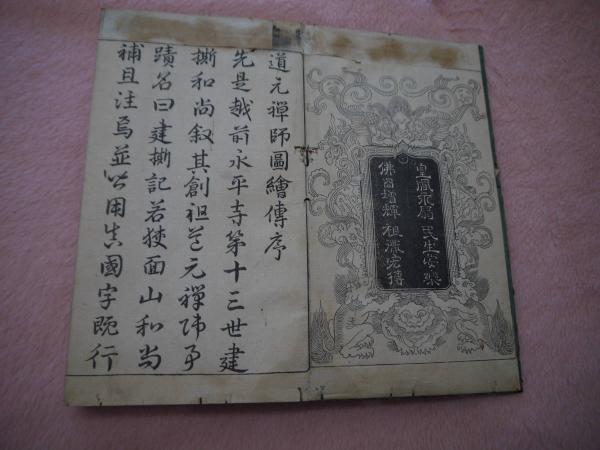 皇風永扇 民生安樂
佛日增輝 祖流宏傳
道元禪師圖繪傳序
先是越前永平寺第十三世建
撕和尚叙其創祖道元禪師事
蹟名曰建撕記若狹面山和尚
補且注焉並皆用吾國字既行